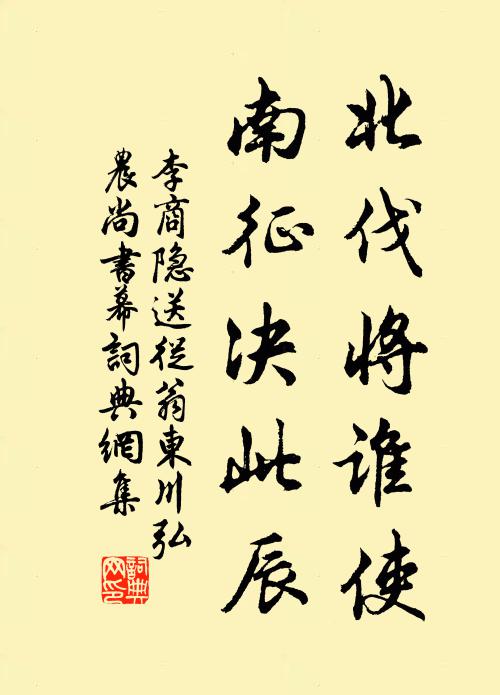 北伐将谁使
南征决此辰
李商隐送從翁東川弘
農尚書幕詞典網集
詞典
网印